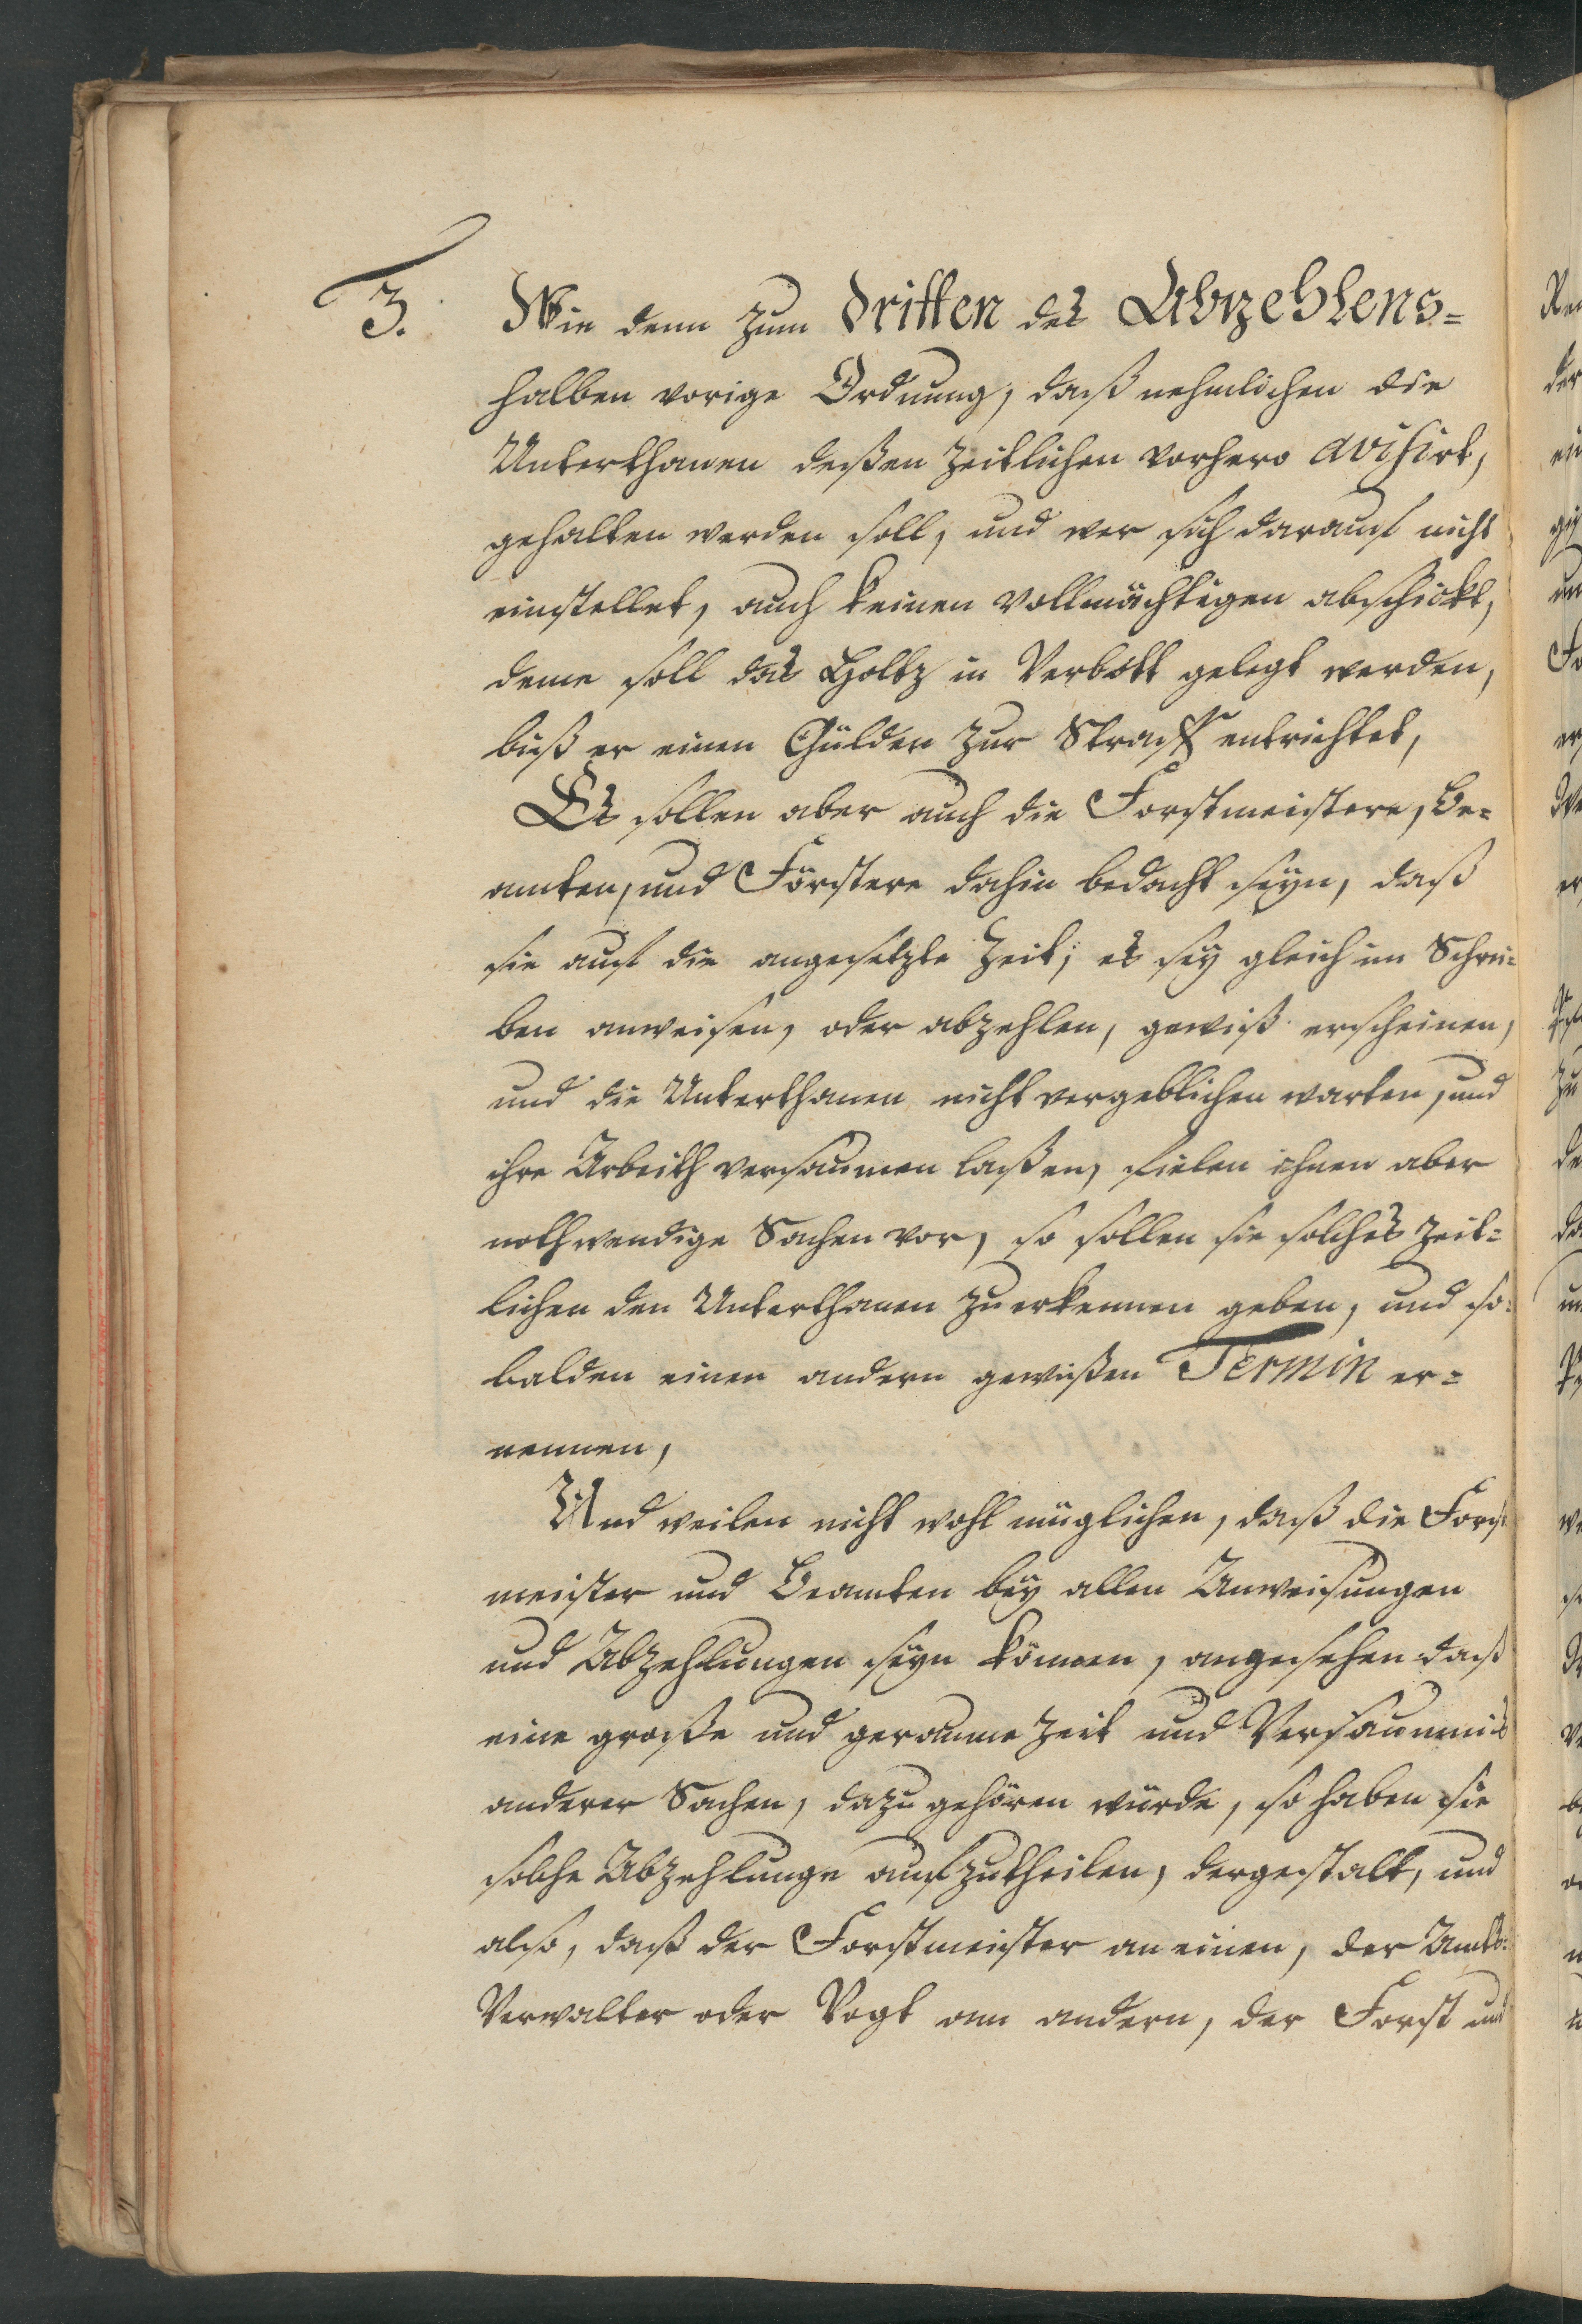 3. Wie denn zum dritten des Abzehlens=
halben vorige Ordnung, daß nehmlichen die
Unterthanen deßen zeitlichen vorhero avisirt,
gehalten werden soll, und wer sich darauf nicht
einstellet, auch keinen vollmächtigen abschickt,
deme soll das Holtz in Verbott gelegt werden,
biß er einen Gülden zur Straff entrichtet,
Es sollen aber auch die Forstmeistere, Be=
amten, und Förstere dahin bedacht seyn, daß
sie auf die angesetzte Zeit, es sey gleich im Schrei=
ben anweisen, oder abzehlen, gewiß erscheinen,
und die Unterthanen nicht vergeblichen warten, und
ihre Arbeith versaumen laßen, fielen ihnen aber
nothwendige Sachen vor, so sollen sie solches zeit=
lichen den Unterthanen zu erkennen geben, und so=
balden einen andern gewißen Termin er=
nennen,
Und weilen nicht wohl müglichen, daß die Forst
meister und Beamten bey allen Anweisungen
und Abzehlungen seyn können, angesehen daß
eine große und geraume Zeit und Versaumnis
anderer Sachen, dazu gehören würde, so haben sie
solche Abzehlunge aufzutheilen, dergestalt, und
also, daß der Forstmeister an einen, der Amts=
Verwalter oder Vogt am andern, der Forst und